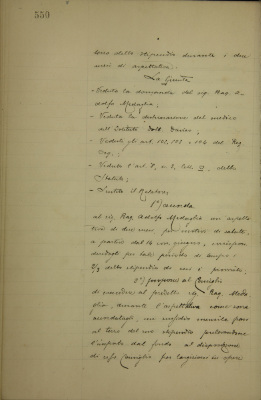 550
terzo dello stipendio durante i due
mesi di aspettativa.
La Giunta
- Veduta la domanda del sig. Rag. A-
dolfo Medaglia;
- Veduta la dichiarazione del medico
dell'Istituto Dott.
- Veduti gli art. 102, 103 e 104 del Reg.
Org.;
- Veduto l'art. 7, n. 2, dello
Statuto;
- Sentito il Relatore,
1º) accorda
al sig. Rag. Adolfo Medaglia un aspetta
tiva di due mesi per motivi di salute,
a partire dal 14 in giugno,
per tale periodo di tempo
dello stipendio da a perciò,
2º) propone al Consiglio
di concedere al predetto sig. Rag. Meda
glia, durante l'aspettativa come sora
accordatagli, un sussidio mensile pari
al terzo del suo stipendio prelevandone
l'importo dal fondo a disposizione
di esso Consiglio per largizioni in opere